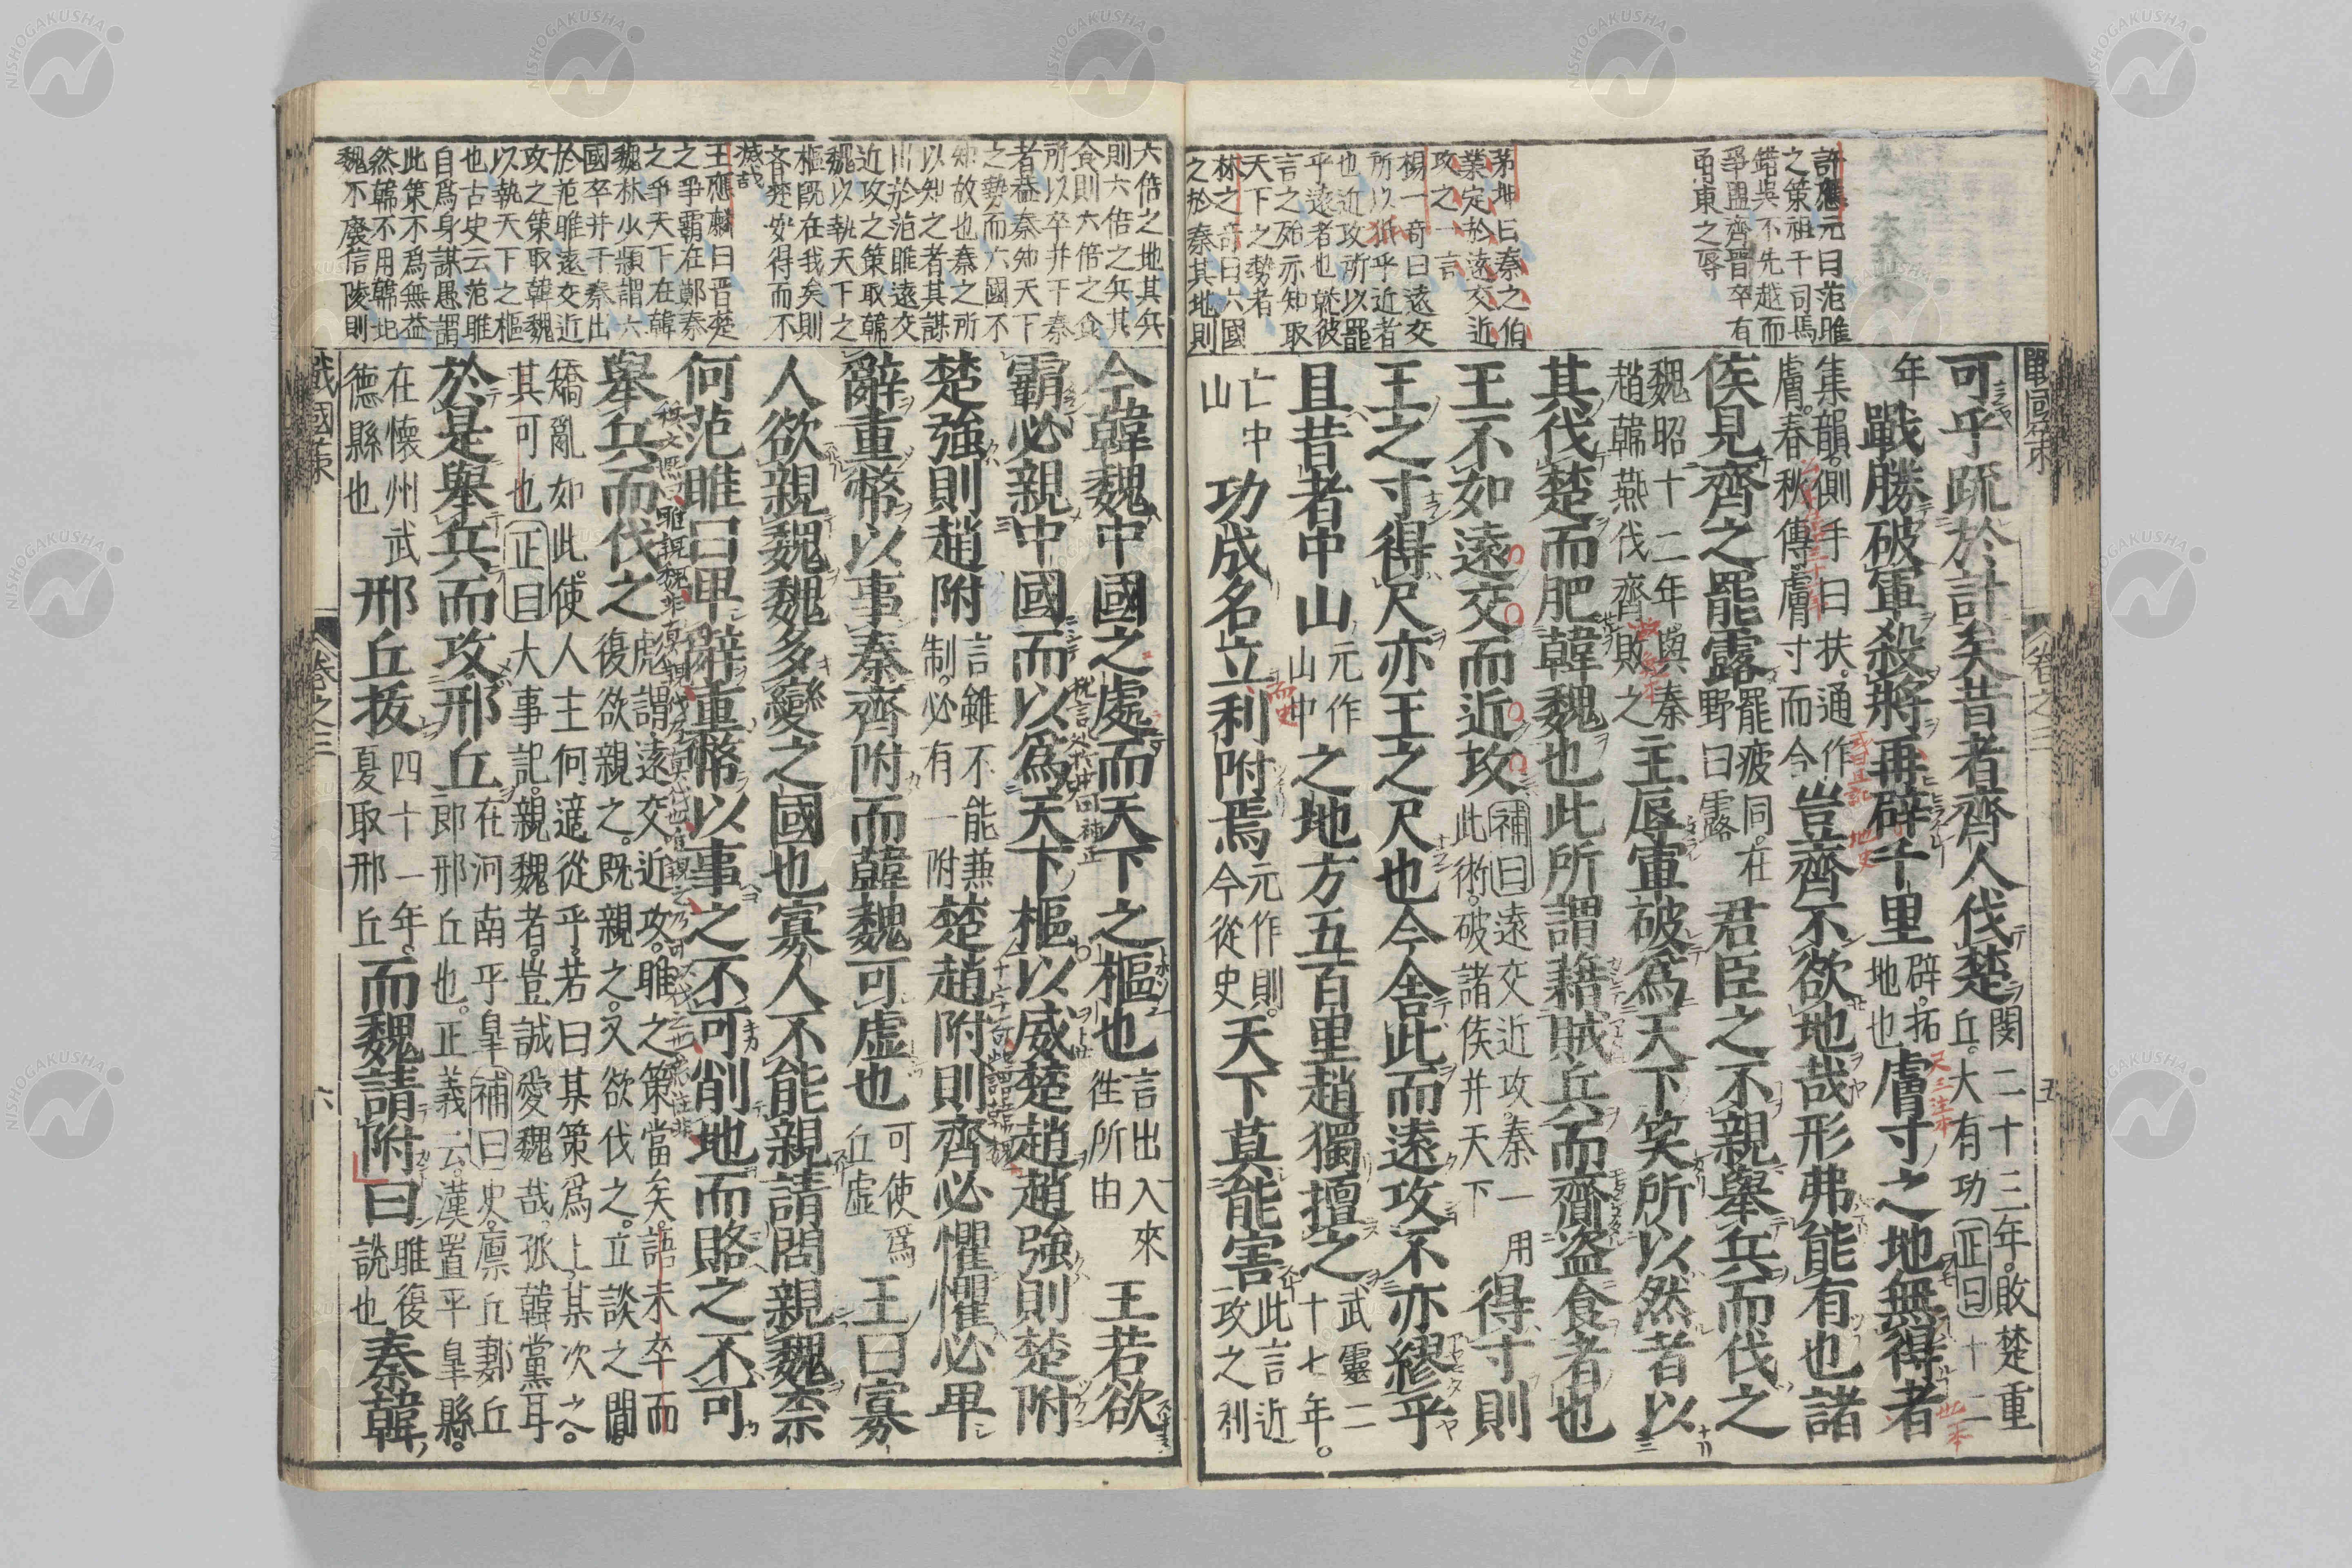 許應元曰范雎
之策祖于司馬
錯吳不先越而
爭盟齊晉卒有
甬東之辱
茅坤曰秦之伯
業定於遠交近
攻之一言
楊一奇曰遠交
所以孤乎近者
也近攻所以罷
乎遠者也就彼
言之殆亦知取
天下之勢者
林之奇曰六國
之於秦其地則
戰國策
卷之三
五
可乎疏於計矣昔者齊人伐楚閔二十三年敗楚重丘大有功正曰十二
年戰勝破軍殺將再辟千里辟拓地也膚寸之地無得者
集韻側手曰扶通作膚春秋傳膚寸而今豈齊不欲地哉形弗能有也諸
侯見齊之罷露罷疲同在野曰露君臣之不親舉兵而伐之
魏昭十二年與秦趙韓燕伐齊敗之主辱軍破爲天下笑所以然者以
其伐楚而肥韓魏也此所謂藉賊兵而齎盜食者也
王不如遠交而近攻補曰遠交近攻秦一用此術破諸侯并天下得寸則
王之寸得尺亦王之尺也今舍此而遠攻不亦繆乎
且昔者中山元作山中之地方五百里趙獨擅之武靈二十七年
亡中山功成名立利附焉元作則今從史天下莫能害此言近攻之利
大倍之地其兵
則六倍之兵其
食則六倍之食
所以卒并于秦
者蓋秦知天下
之勢而六國不
知故也秦之所
以知之者其謀
出於范雎遠交
近攻之策取韓
魏以執天下之
樞既在我矣則
齊楚安得而不
滅哉
王應麟曰晉楚
之爭霸在鄭秦
之爭天下在韓
魏林少穎謂六
國卒并于秦出
於范雎遠交近
攻之策取韓魏
以執天下之樞
也古史云范雎
自爲身謀愚謂
此策不爲無益
然韓不用韓玘
魏不廢信陵則
今韓魏中國之處而天下之樞也言出入來往所由王若欲
霸必親中國而以爲天下樞以威楚趙趙強則楚附
楚強則趙附言雖不能兼制必有一附楚趙附則齊必懼懼必卑
辭重幣以事秦齊附而韓魏可虛也可使爲丘虛王曰寡
人欲親魏魏多變之國也寡人不能親請問親魏柰
何范雎曰卑辭重幣以事之不可削地而賂之不可
舉兵而伐之彪謂遠交近攻雎之策當矣語未卒而復欲親之既親之又欲伐之立談之間
矯亂如此使人主何適從乎若曰某策爲上某次之其可也正曰大事記親魏者豈誠愛魏哉孤韓黨耳
於是舉兵而攻邢丘在河南平皐補曰史廩丘郪丘即邢丘也正義云漢置平皐縣
在懷州武德縣也邢丘拔四十一年夏取邢丘而魏請附曰雎復說也秦韓
戰國策
卷之三
六